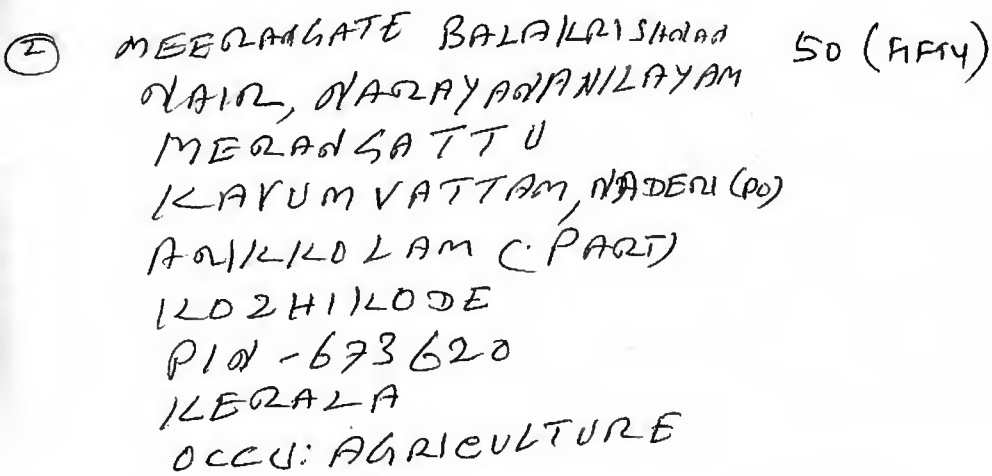 ② MEERANGATE BALAKRISHNAN 50 (FIFTY)
NAIR, NARAYANANILAYAM
MERANGATTU
KAVUMVATTAM, NADERI (PO)
ARIKKOLAM (PART)
KOZHIKODE
PIN - 673620
KERALA
OCCU: AGRICULTURE